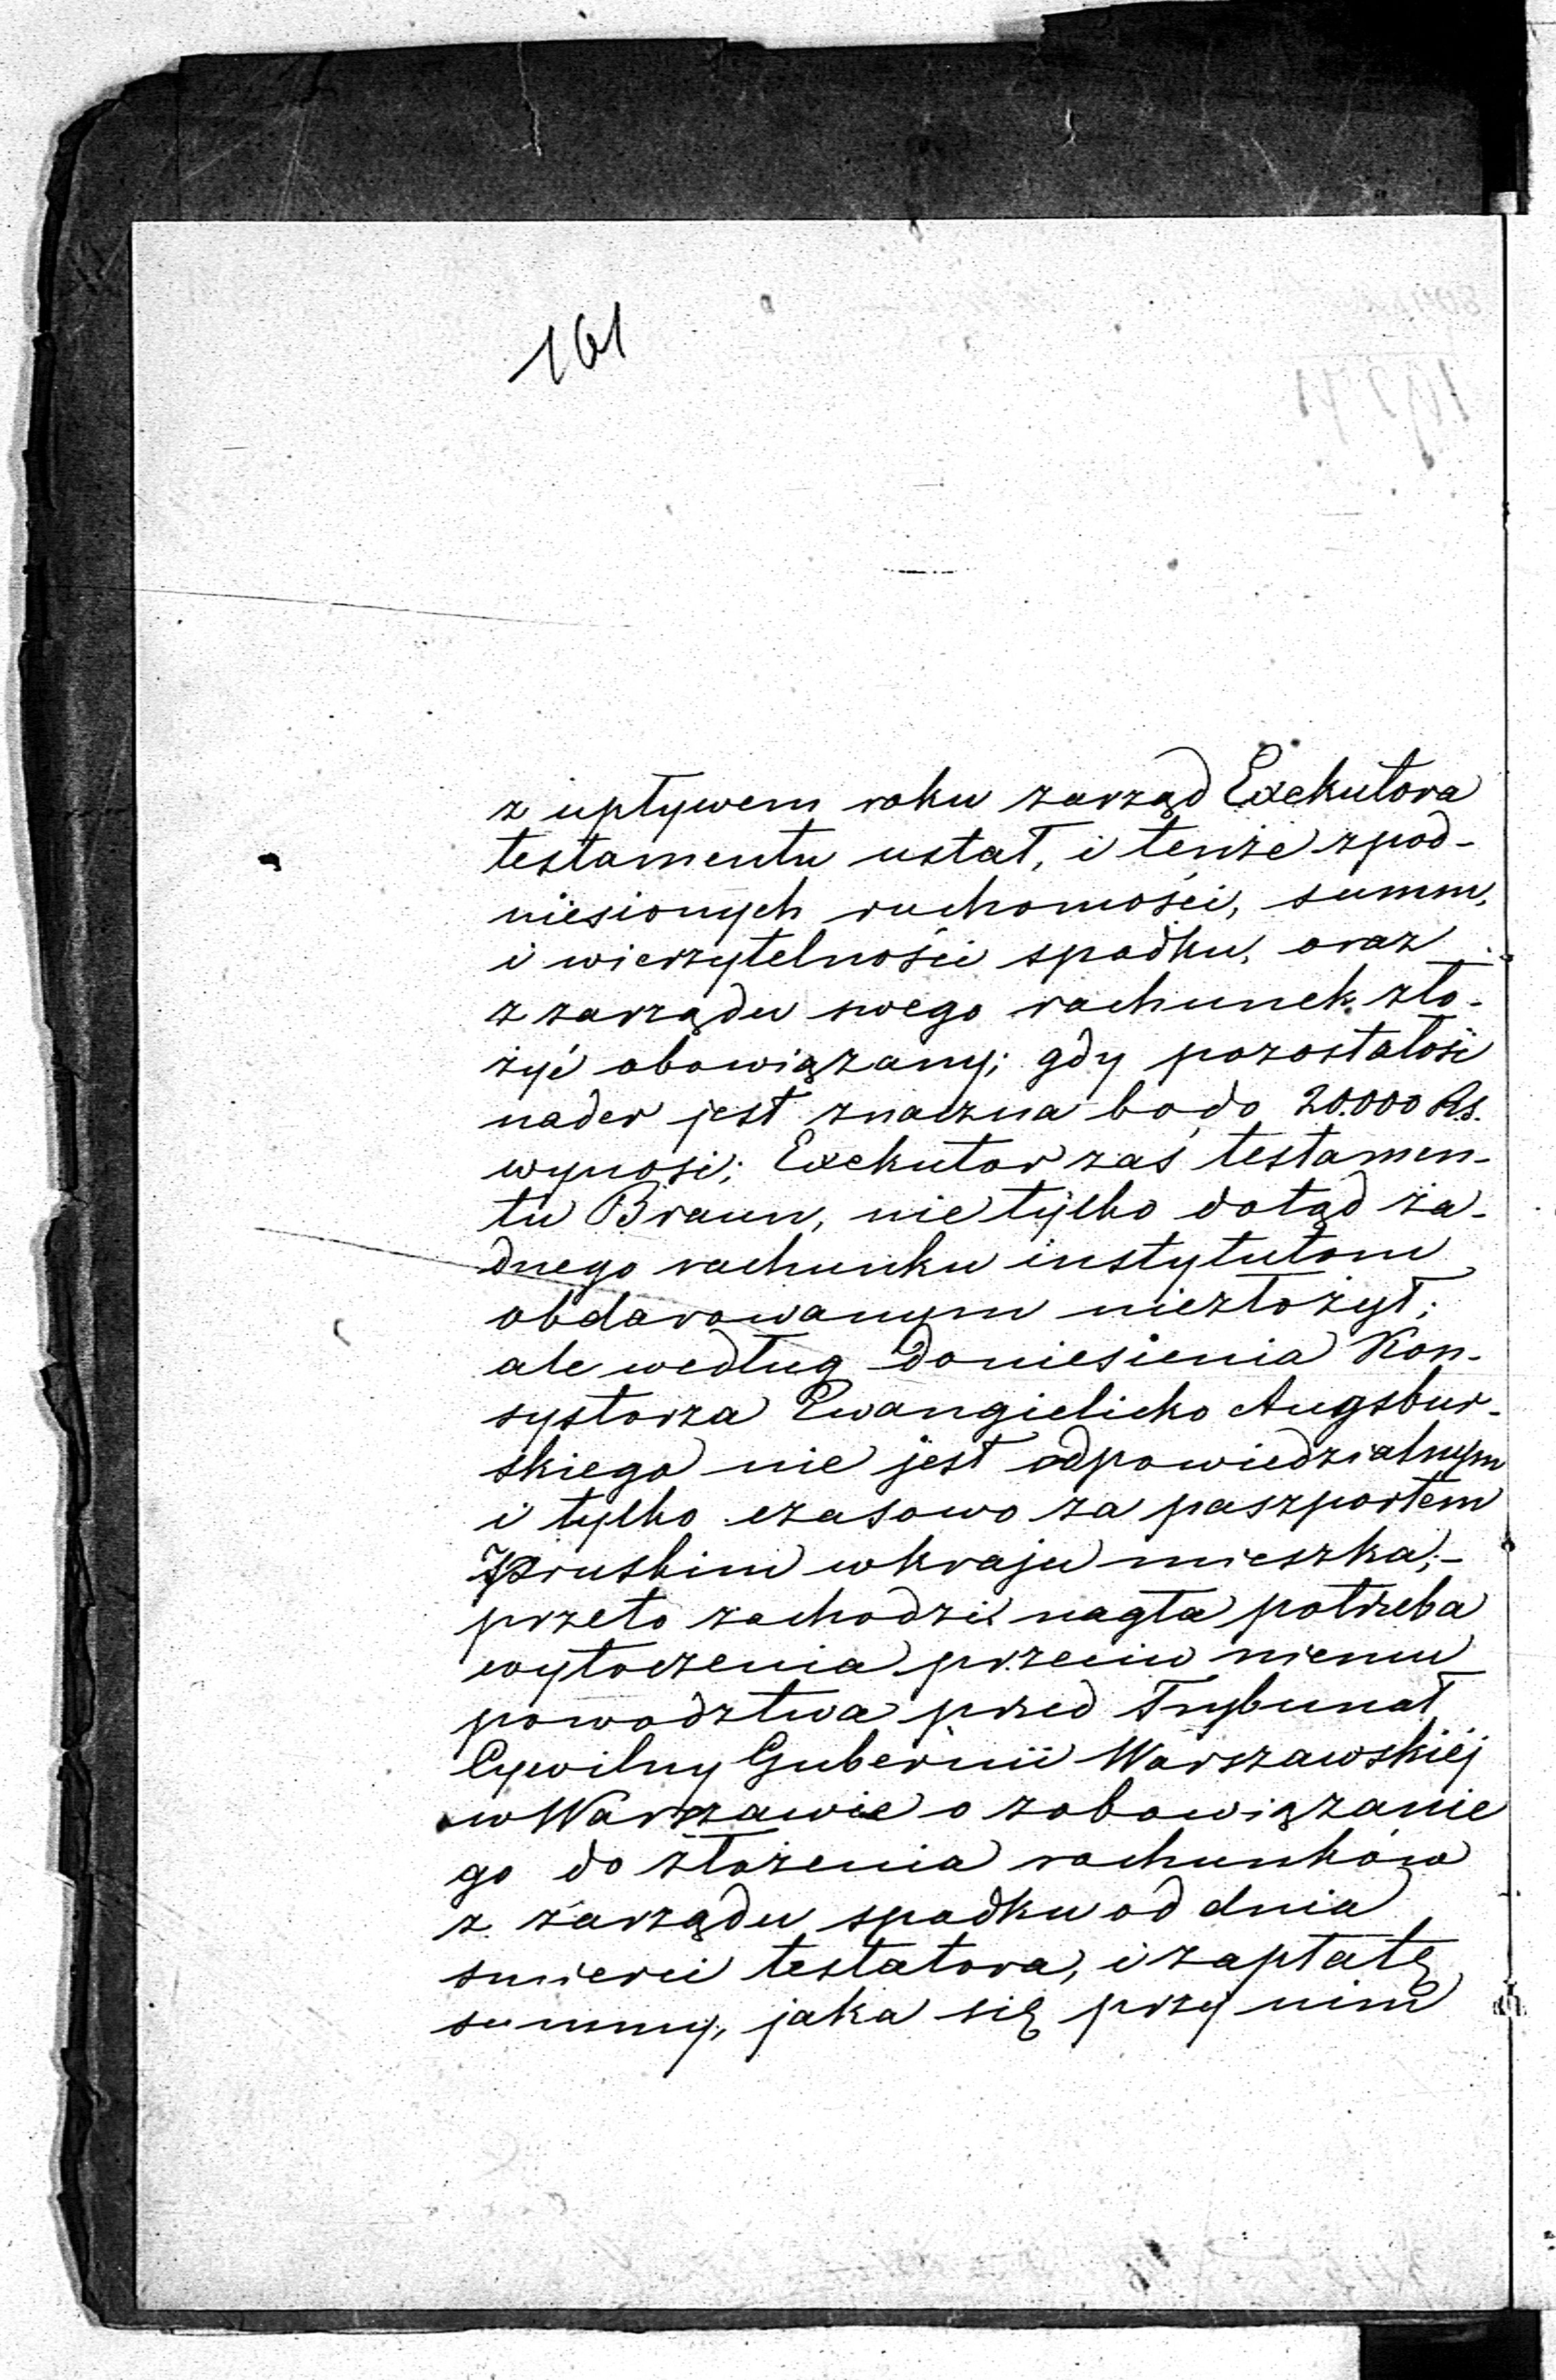 161
z upływem roku zarząd Exekutora
testamentu ustał, i tenże z pod-
niesionych ruchomości, summ,
i wierzytelności spadku, oraz
z zarządu swego rachunek zło-
żyć obowiązany; gdy pozostałość
nader jest znaczna bo do 20.000 Rs.
wynosi; Exekutor zaś testamen-
tu Braun, nie tylko dotąd ża-
dnego rachunku instytutom
obdarowanym niezłożył;
ale według doniesienia Kon-
systorza Ewangielicko Augsbur-
skiego nie jest odpowiedzialnym
i tylko czasowo za paszportem
Pruskim w kraju mieszka;-
przeto zachodzi nagła potrzeba
wytoczenia przeciw niemu
powództwa przed Trybunał
Cywilny Gubernii Warszawskiej
w Warszawie o zobowiązanie
go do złożenia rachunków
z zarządu spadku od dnia
smierci testatora, i zapłatę
summy, jaka się przy nim